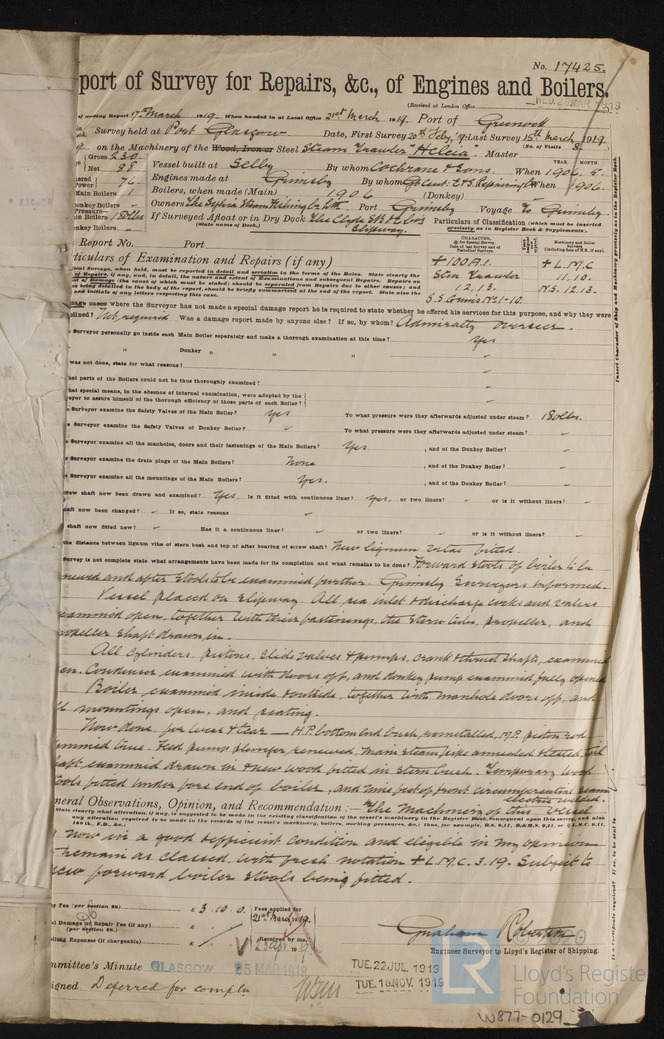 No. 17425.
port of Survey for Repairs, &c., of Engines and Boilers.
(Received at London Office
WED. 26 MAR 1919
of writing Report 17th March 1919 When handed in at Local Office 21st March 1919 Port of Greenock
Survey held at Port Glasgow Date, First Survey 20th Feby, 19 Last Survey 15th March 1919
(No. of Visits 8
on the Machinery of the Wood, Iron or Steel Steam Trawler "Helcia" Master
Gross 230 YEAR. MONTH.
Net 98 Vessel built at Selby By whom Cochrane & Sons When 1906. 5.
Engines made at Grimsby By whom Gt Cent. C & S. Repairing Co When 1906.
Power 74
Main Boilers 1 Boilers, when made (Main) 1906 (Donkey)
Donkey Boilers " Owners The Sylvia Steam Fishing Co Ltd Port Grimsby Voyage To Grimsby
Pressure—
Main Boilers 180 lbs If Surveyed Afloat or in Dry Dock The Clyde S.B. & Co's
Donkey Boilers " (State name of Dock.) Slipway.
Particulars of Classification (which must be inserted
precisely as in Register Book & Supplements).
Report No. Port
ticulars of Examination and Repairs (if any)
+100A1. + L.M.C
Stm Trawler 11.10.
12.13. N.S. 12.13.
S.S. Grims No1-10.
mage cases where the Surveyor has not made a special damage report he is required to state whether he offered his services for this purpose, and why they were
Not required Was a damage report made by anyone else? If so, by whom? Admiralty overseer.
e Surveyor personally go inside each Main Boiler separately and make a thorough examination at this time? Yes
" Donkey " " "
was not done, state for what reasons?
hat parts of the Boilers could not be thus thoroughly examined?
hat special means, in the absence of internal examination, were adopted by the
veyor to assure himself of the thorough efficiency of those parts of each Boiler?
e Surveyor examine the Safety Valves of the Main Boiler? Yes To what pressure were they afterwards adjusted under steam? 180lbs.
e Surveyor examine the Safety Valves of Donkey Boiler? " To what pressure were they afterwards adjusted under steam? "
e Surveyor examine all the manholes, doors and their fastenings of the Main Boilers? Yes , and of the Donkey Boiler? "
e Surveyor examine the drain plugs of the Main Boilers? None , and of the Donkey Boiler? "
e Surveyor examine all the mountings of the Main Boilers? Yes. , and of the Donkey Boiler? "
crew shaft now been drawn and examined? Yes. Is it fitted with continuous liner? Yes. or two liners? " or is it without liners? "
haft now been changed? " If so, state reasons "
shaft now fitted new? " Has it a continuous liner? " or two liners? " or is it without liners? "
the distance between lignum vitæ of stern bush and top of after bearing of screw shaft? New lignum vitae fitted.
Survey is not complete state what arrangements have been made for its completion and what remains to be done? Forward stools of boiler to be
newed and after stools to be examined further. Grimsby Surveyors informed.
Vessel placed on Slipway. All sea inlet & discharge cocks and valves
examined open, together with their fastenings, the stern tube, propeller, and
propeller shaft drawn in.
All cylinders, pistons, slide valves & pumps, crank & thrust shafts, examined
en. Condenser examined with doors off, and donkey pump examined fully opened
Boiler examined inside & outside, together with manhole doors off, and
ll mountings open, and seating.
Now done for wear & tear — H.P. bottom end bush remetalled, M.P. piston rod
mmed true. Feed pump plunger renewed, main steam pipe annealed & tested, tail
haft examined drawn in & new wood fitted in stern bush. Temporary wood
tools fitted under fore end of boiler, and nine feet of front circumferential seam
electric welded.
neral Observations, Opinion, and Recommendation:— The machinery of this vessel
now in a good & efficient condition and eligible in my opinion
remain as classed, with fresh notation + L.M.C. 3.19. Subject to
new forward boiler stools being fitted.
y Fee (per section 28) £ 3. 10. 0. Fees applied for
21st March 1919.
l Damage or Repair Fee (if any)
(per section 28.)
elling Expenses (if chargeable) Received by me,
Graham Robertson
Engineer Surveyor to Lloyd's Register of Shipping.
mmittee's Minute GLASGOW 25 MAR 1919
TUE. 22 JUL. 1919
TUE. 18 NOV. 1919
igned Deferred for compln
© 2020
Lloyd's Register
Foundation
LR
W877-0129